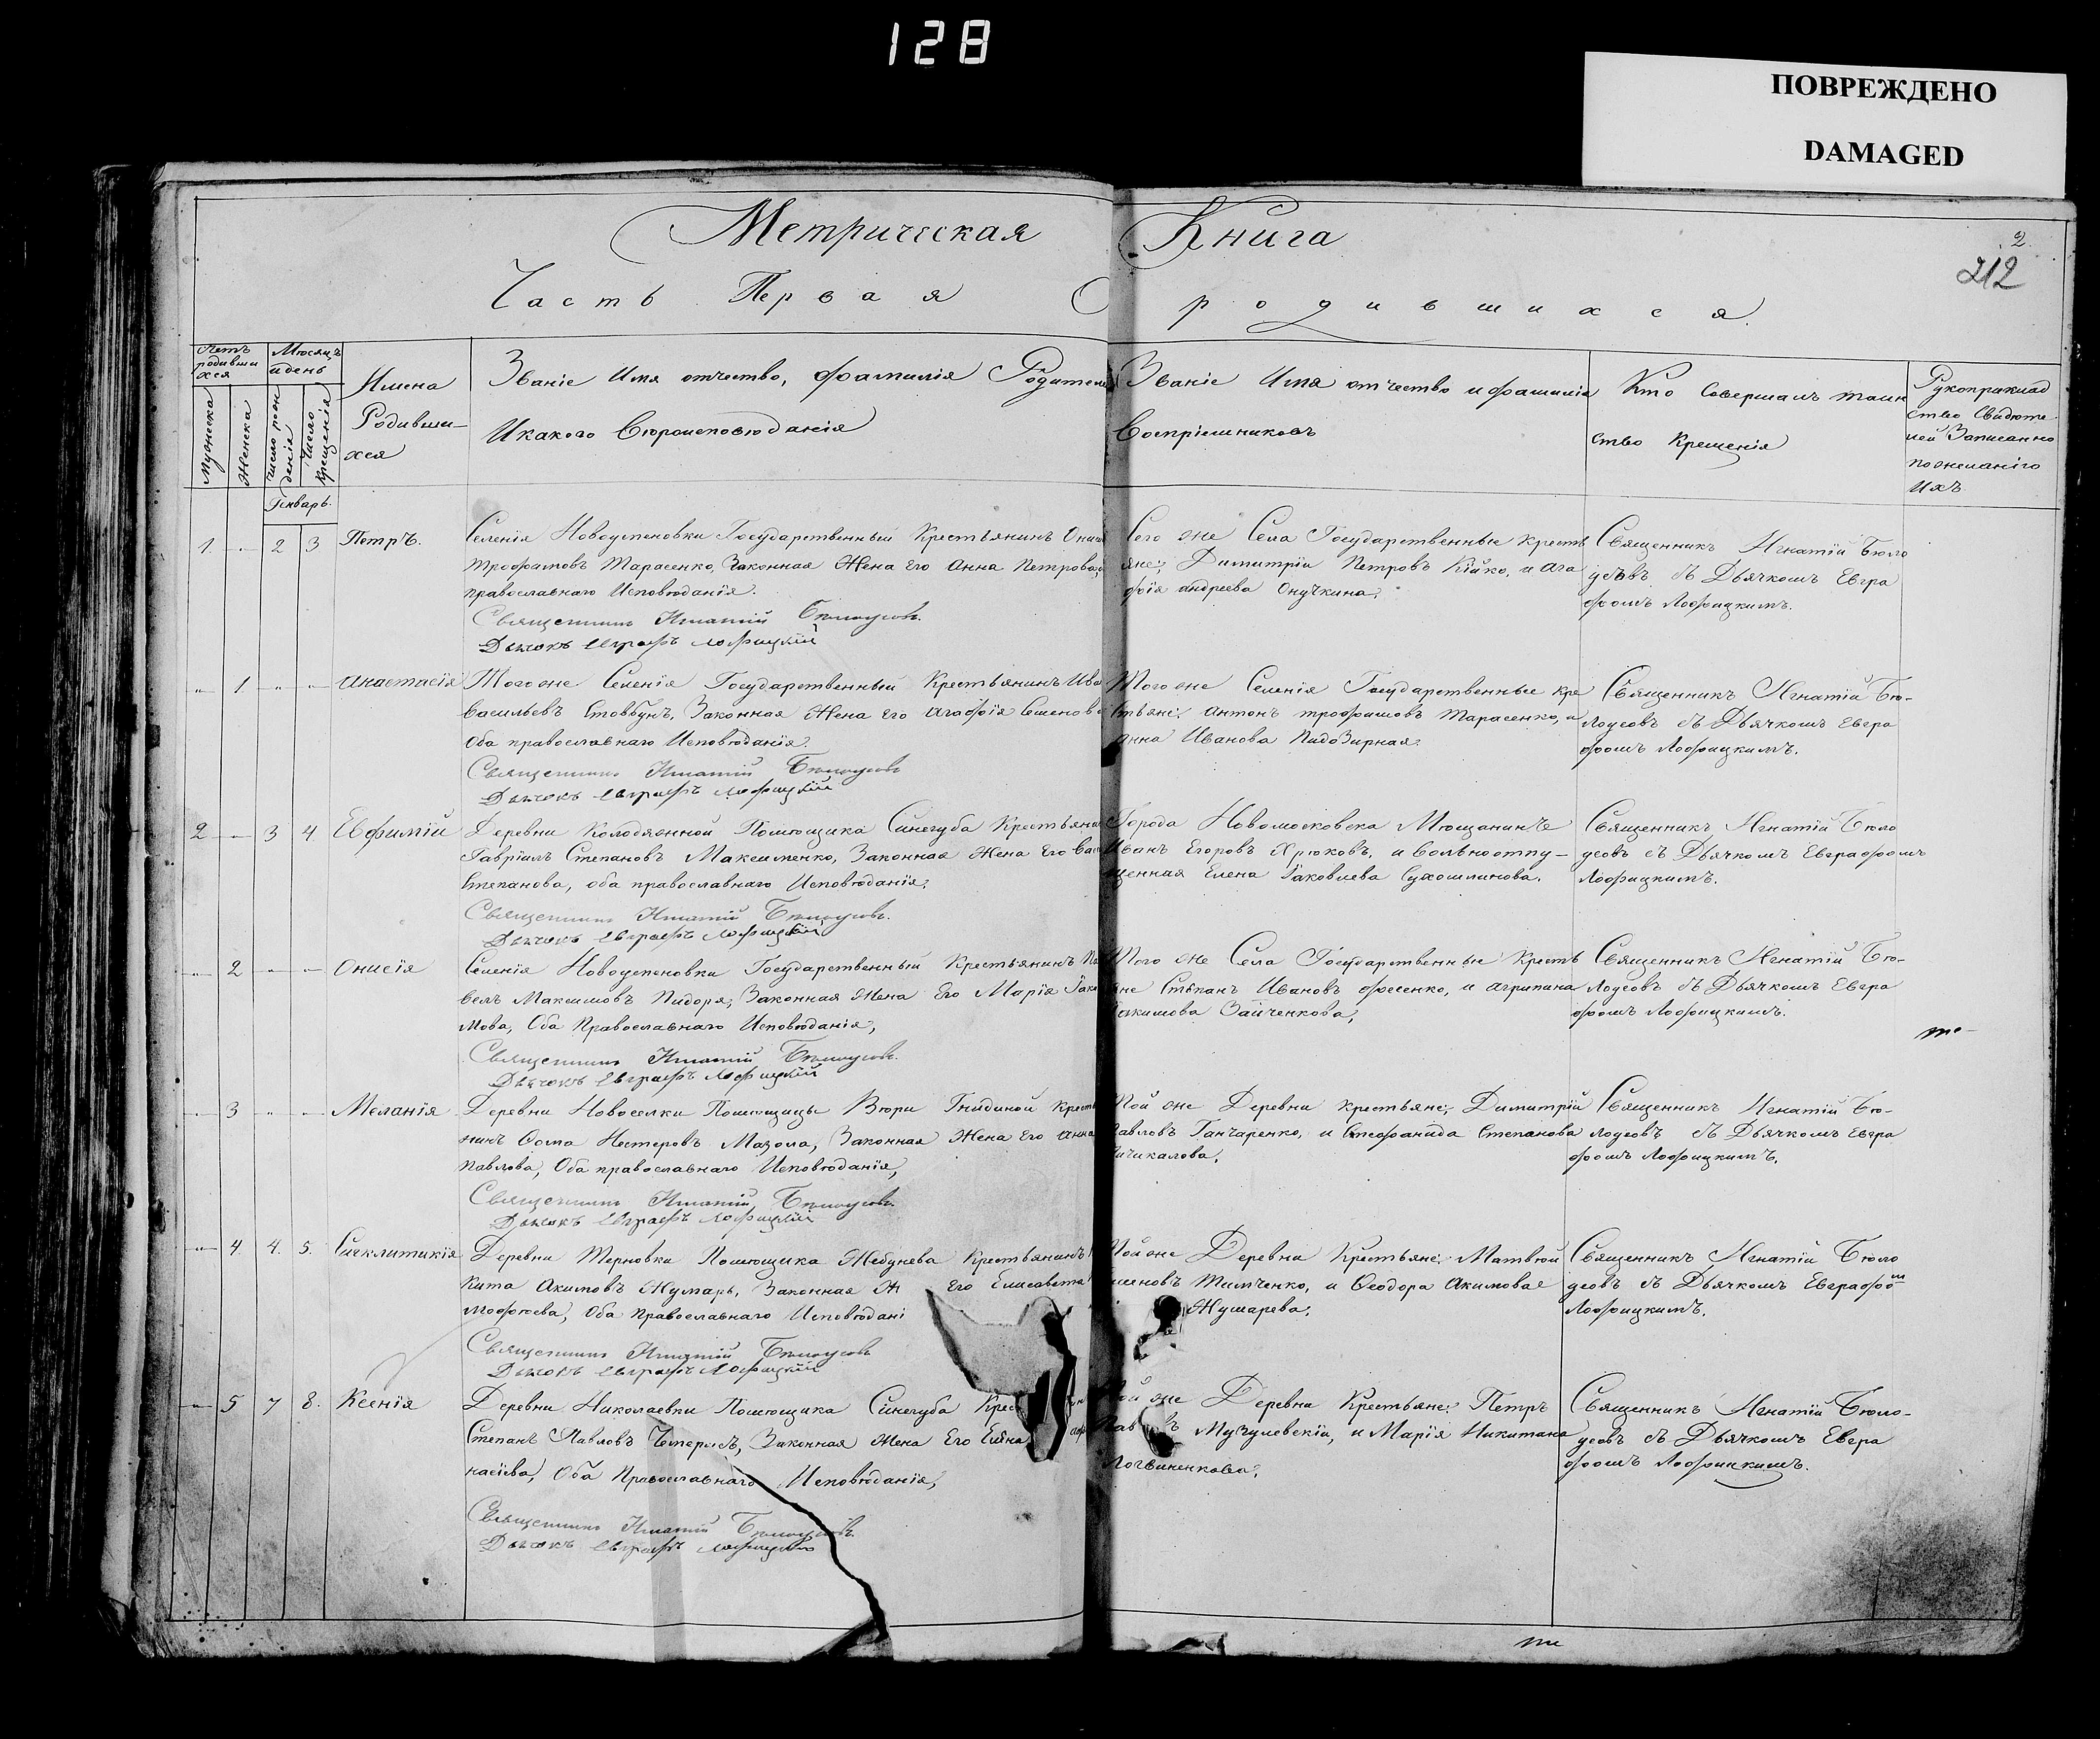 128
ПОВРЕЖДЕНО
DAMAGED
Метрическая Книга
2.
212
Часть Первая О родившихся.
Счетъ родившихся
Мѣсяцъ и день
Мужеска
Женска
Число рожденія
Число Крещенія
Имена Родившихся
Званіе Имя отчество, фамилія Родителей
Икакого Вѣроисповѣданія
Званіе Имя отчество и фамилія
Воспріемниковъ
Кто Совершалъ таин
ство Крещенія
Рукоприклад
ство Свидѣте
лей Записанно
пожеланію
Ихъ
Генварь.
1. 2 3 Петръ.
Селенія Новоуспеновки Государственный Крестьянинъ
Трофимовъ Тарасенко, Законная Жена Его Анна Петрова,
православнаго Исповѣданія.
Священникъ Игнатій Бѣлоусовъ.
Дьячокъ Евграфъ Лофицкій
Сего же Села Государственные Кресть
яне; Димитрій Петровъ Кійко, и Ага
фія андреева Онучкина;
Священникъ Игнатій Бѣло
усовъ съ Дьячкомъ Евгра
фомъ Лофицкимъ.
1 Анастасія
Того же Селенія Государственный Крестьянинъ Ива
Васильевъ Стовбунъ, Законная Жена Его Агафія Семенова
Оба православнаго Исповѣданія.
Священникъ Игнатій Бѣлоусовъ
Дьячокъ Евграфъ Лофицкій
Того же Селенія Государственные кре
стьяне; Антонъ трофимовъ Тарасенко, и
Анна Иванова Пидозирная.
Священникъ Игнатій Бѣ-
лоусовъ съ Дьячкомъ Евгра
фомъ Лофицкимъ.
2 3 4 Евфимій
Деревни Колодяжной Помѣщика Синегуба Крестьянин
Гавріилъ Степановъ Максименко, Законная Жена Его Вас
Степанова, оба православнаго Исповѣданія;
Священникъ Игнатій Бѣлоусовъ.
Дьячокъ Евграфъ Лофицкій
Города Новомосковска Мѣщанинъ
Иванъ Егоровъ Крюковъ, и вольноотпу-
щенная Елена Яковлева Сухомлинова.
Священникъ Игнатій Бѣло
усовъ съ Дьячкомъ Евграфомъ
Лофицкимъ.
2 Онисія
Селенія Новоуспеновки Государственный Крестьянинъ Па
велъ Максимовъ Пидоря; Законная Жена Его Марія Яки
мова, Оба Православнаго Исповѣданія,
Священникъ Игнатій Бѣлоусовъ.
Дьячокъ Евграфъ Лофицкій
Того же Села Государственные Кресть
яне Стѣпанъ Ивановъ Фесенко, и Агрипина
Екимова Зайченкова,
Священникъ Игнатій Бѣ-
лоусовъ съ Дьячкомъ Евгра
фомъ Лофицкимъ.
3 Меланія
Деревни Новоселки Помѣщицы Вѣры Гнидиной Кресть
нинъ Ѳома Нестеровъ Мазола, Законная Жена Его Анна
Павлова, Оба православнаго Исповѣданія,
Священникъ Игнатій Бѣлоусовъ
Дьячокъ Евграфъ Лофицкій
Той же Деревни крестьяне; Димитрій
Павловъ Ганчаренко, и Стефанида Степанова
ичикалова.
Священникъ Игнатій Бѣ-
лоусовъ съ Дьячкомъ Евгра
фомъ Лофицкимъ.
4. 4. 5. Сигклитикія
Деревни Терновки Помѣщика Жебунева Крестьянинъ
кита Акимовъ Жумарь, Законная Ж Его Елисавета
Моѳѣева, Оба Православнаго Исповѣдані
Священникъ Игнатій Бѣлоусовъ
Дьячокъ Евграфъ Лофицкій
Той же Деревни Крестьяне; Матвѣй
Семеновъ Тимченко, и Ѳеодора Акимовая
Жумарева.
Священникъ Игнатій Бѣло
усовъ съ Дьячкомъ Евграфом
Лофицкимъ.
5 7 8. Ксенія
Деревни Николаевки Помѣщика Синегуба Крес
Степанъ Павловъ Чмерисъ, Законная Жена Его Елена
насіева, Оба Православнаго Исповѣданія,
Священникъ Игнатій Бѣлоусовъ.
Дьячокъ Евграфъ Лофицкій
той же Деревни Крестьяне; Петръ
Музулевскій, и Марія Никитина
Логвиненкова;
Священникъ Игнатій Бѣло-
усовъ съ Дьячкомъ Евгра
фомъ Лофицкимъ.